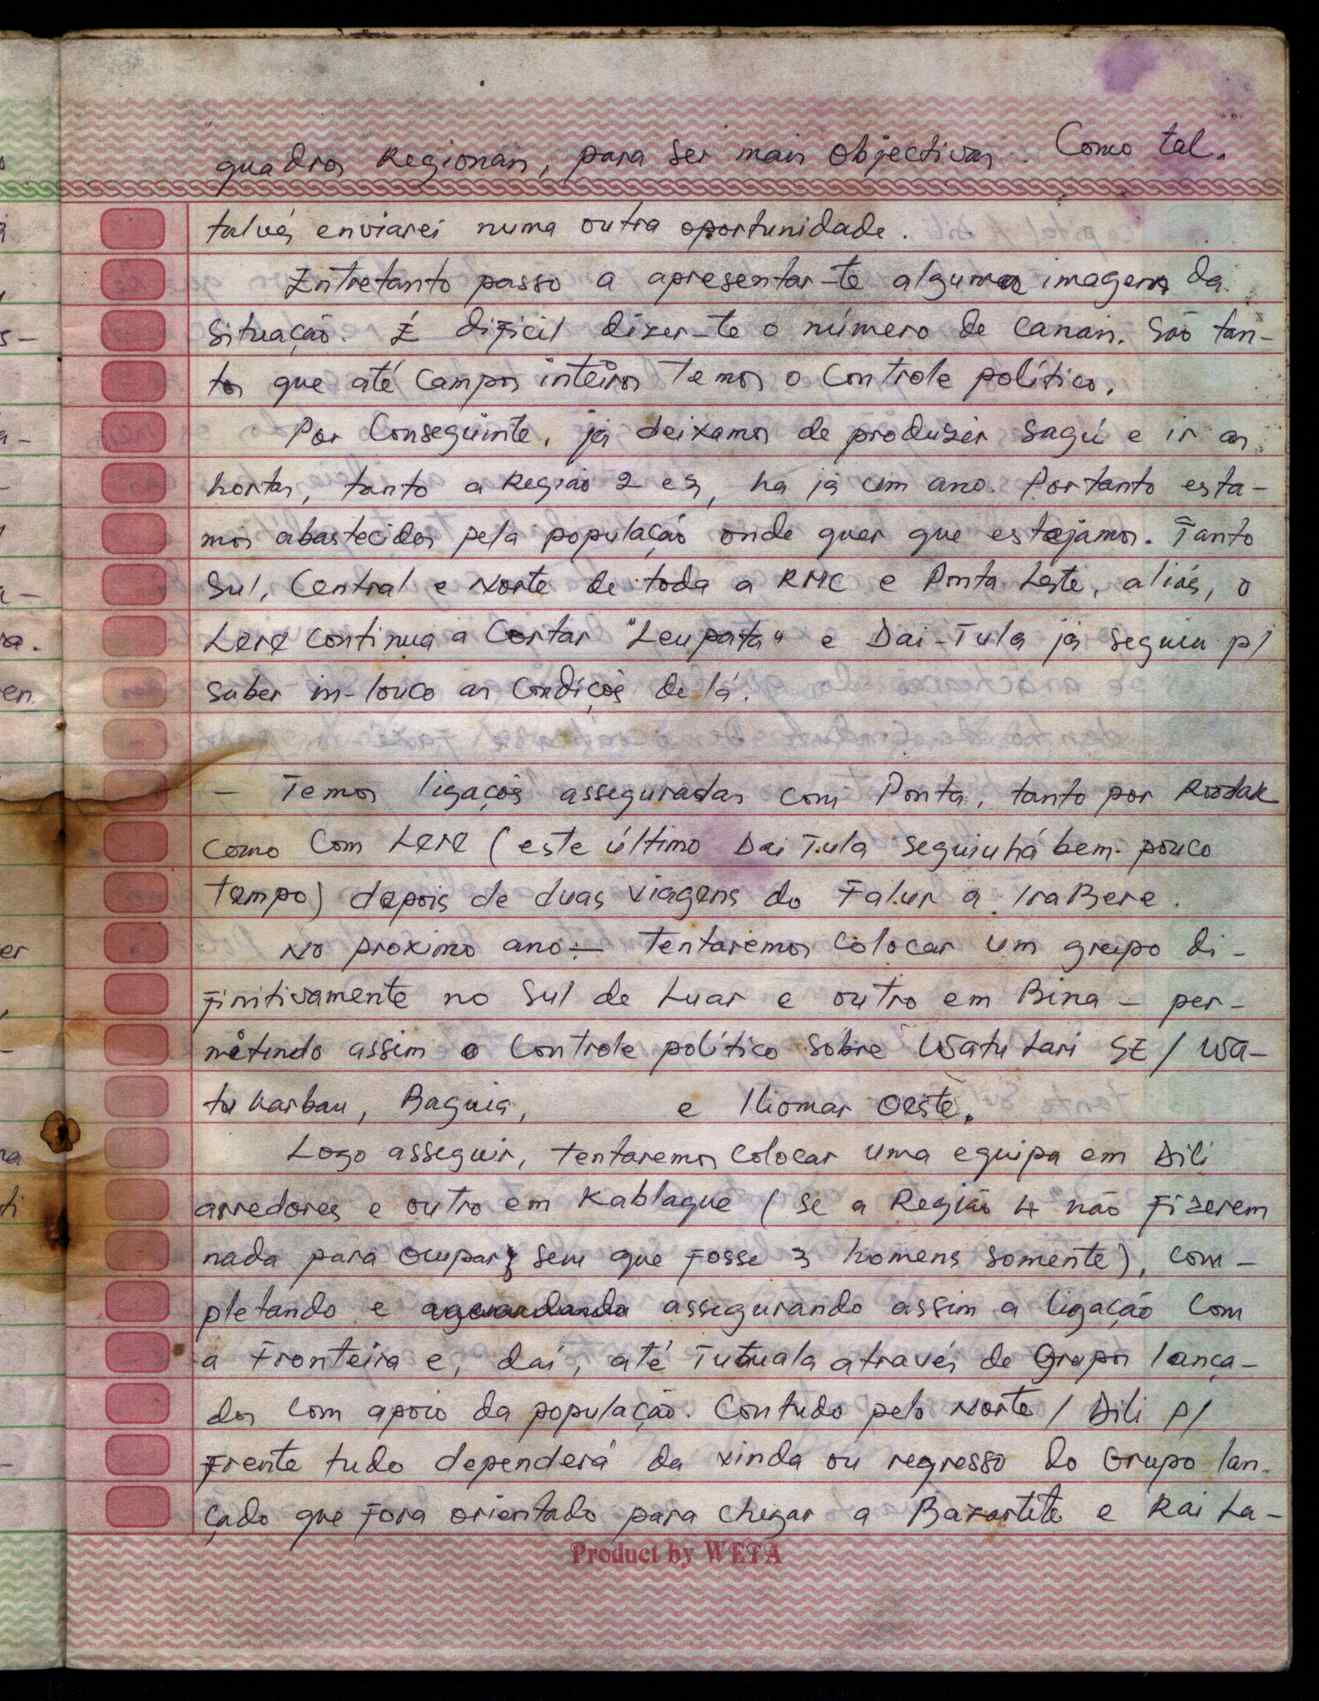 quadros Regionais, para ser mais objectivas. Como tal,
talvés enviarei numa outra oportunidade.
Entretanto passo a apresentar-te algumas imagens da
situação. É dificil dizer-te o número de canais. São tan-
tos que até campos inteiros temos o controle político.
Por conseguinte, já deixamos de produzir sagú e ir as
hortas, tanto a Região 2 e 3, há já um ano. Portanto esta-
mos abastecidos pela população onde quer que estejamos. Tanto
Sul, Central e Norte de toda a RMC e Ponta Leste, aliás, o
Lere continua a cortar "Leupata" e Dai-Tula já seguiu p/
saber in-louco as condiços de lá.
- Temos ligaços asseguradas com Ponta, tanto por Roodak
como com Lere (este último Dai Tula seguiu há bem pouco
tempo) depois de duas viagens do Falur a IraBere.
No proximo ano:- tentaremos colocar um grupo di-
finitivamente no Sul de Luar e outro em Bina - per-
mitindo assim o controle político sobre Watu Lari SE / Wa-
tu karbau, Baguia, e Iliomar Oeste.
Logo asseguir, tentaremos colocar uma equipa em Dili
arredores e outro em Kablaque (se a Região 4 não fizerem
nada para ocupar, sem que fosse 3 homens somente), com-
pletando e assegurando assim a ligação com
a Fronteira e, daí, até Tutuala através de Grupos lança-
dos com apoio da população. Contudo pelo Norte / Dili p/
frente tudo dependerá da vinda ou regresso do Grupo lan-
çado que fora orientado para chegar a Bazartete e Rai La-
Product by WETA